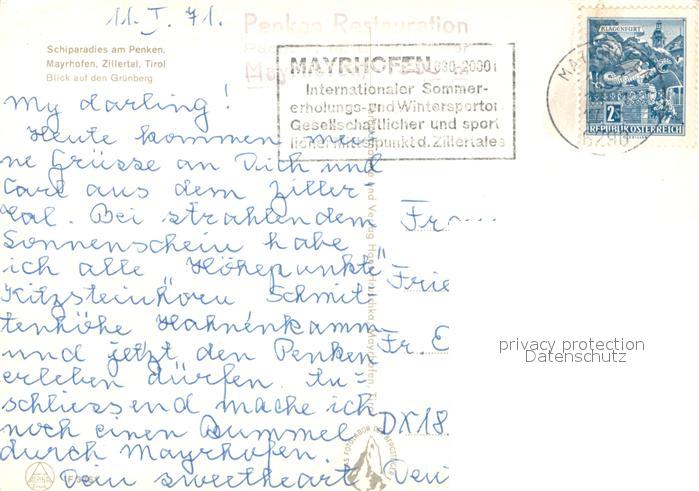 11. I. 71.
Penken Restauration
Schiparadies am Penken,
Mayrhofen, Zillertal, Tirol
Blick auf den Grünberg
MAYRHOFEN 630-2000m
Internationaler Sommer-
erholungs-und Wintersportort
Gesellschaftlicher und sport
licher Mittelpunkt d. Zillertales
KLAGENFURT
2S
REPUBLIK ÖSTERREICH
6290
My darling!
Heute kommen mei-
ne Grüsse an Dich und
Carl aus dem Ziller-
tal. Bei strahlendem
Sonnenschein habe
ich alle "Höhepunkte"
Kitzsteinhorn Schmit-
tenhöhe Hahnenkamm
und jetzt den Penken
erleben dürfen. An=
schliessend mache ich
noch einen Bummel
durch Mayrhofen.
Dein sweetheart
Frie
Fr. E
DX18
privacy protection
Datenschutz